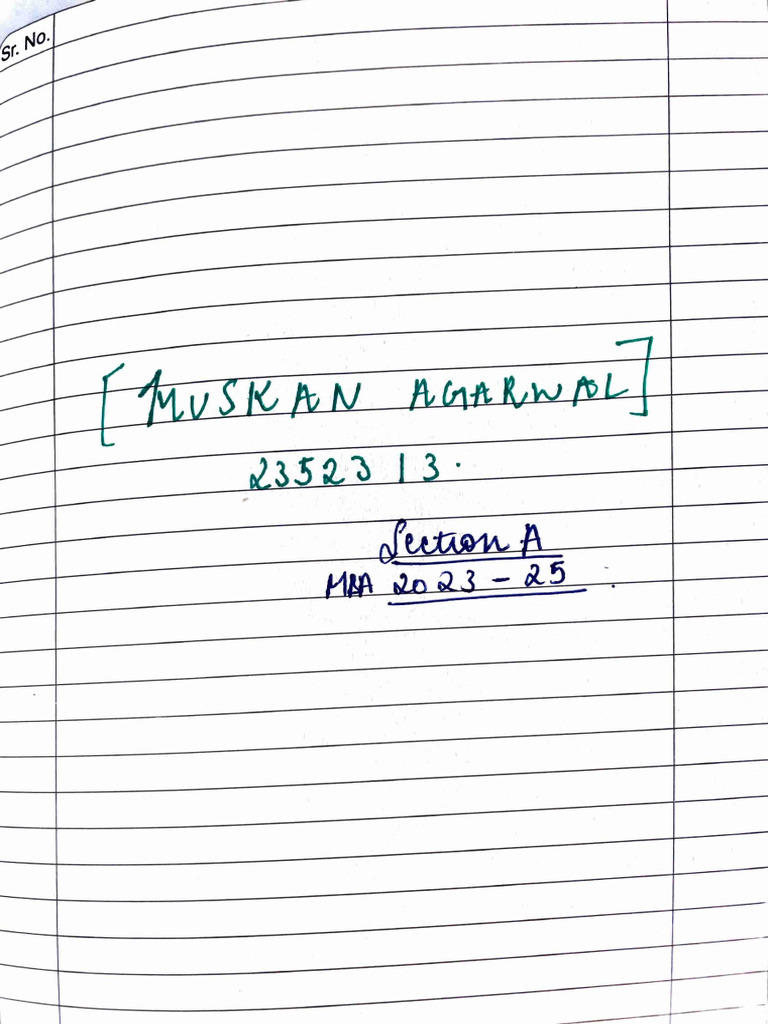 Sr. No.
[MUSKAN AGARWAL]
2352313.
Section A
MBA 2023-25